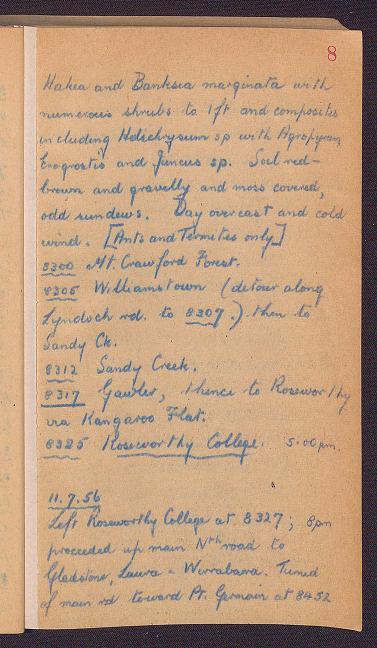 8
Hakea and Banksia marginata with
numerous shrubs to 1ft and composites
including Helichrysum sp with Agropyron,
Eragrostis and Juncus sp. Soil red-
brown and gravelly and moss covered,
odd sundews. Day overcast and cold
wind. [Ants and Termites only]
8300 Mt. Crawford Forest.
8305 Williamstown (detour along
Lyndoch rd. to 8307.) then to
Sandy Ck.
8312 Sandy Creek.
8317 Gawler, thence to Roseworthy
via Kangaroo Flat.
8325 Roseworthy College. 5.00 pm.
11.7.56
Left Roseworthy College at 8327; 8pm
proceeded up main Nth road to
Gladstone, Laura - Wirrabara. Turned
off main rd toward Pt. Germain at 8452